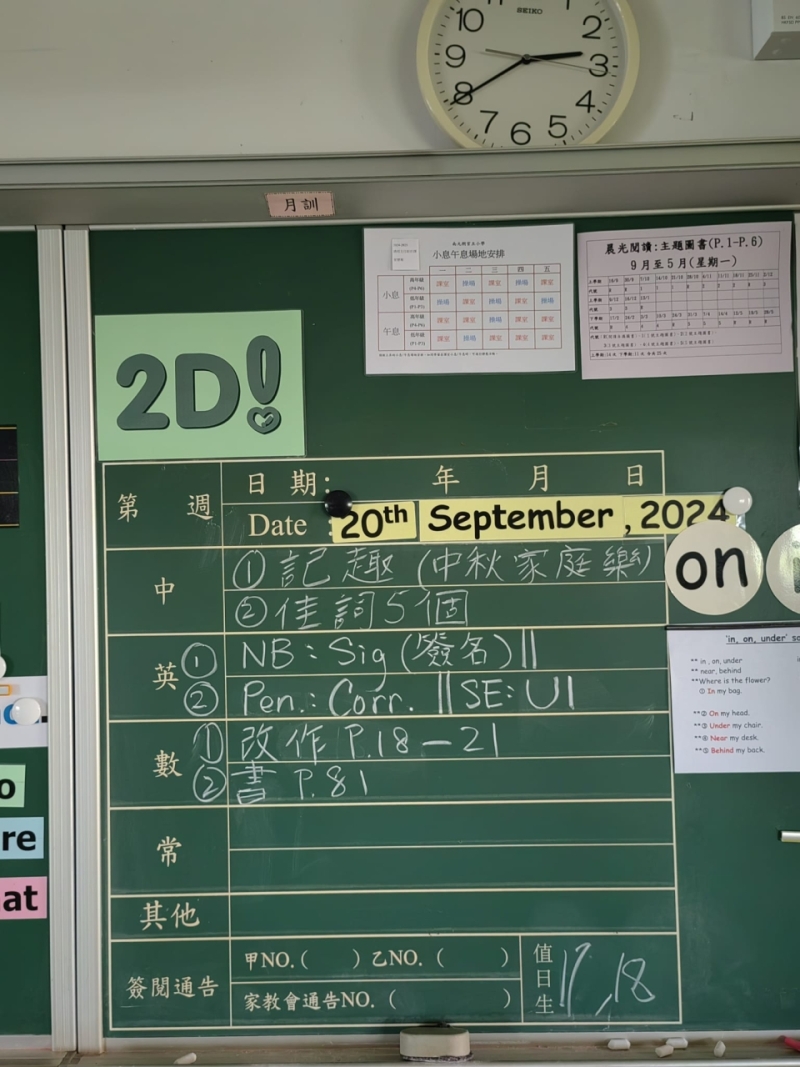 10
SEIKO
2
9
3
8
4
7
6
5
月訓
小息午息場地安排
一 二 三 四 五
小息
課室 操場 課室 操場 課室
操場 課室 操場 課室 操場
午息
課室 課室 操場 課室 課室
課室 操場 課室 課室 課室
晨光閱讀:主題圖書(P.1-P.6)
9月至5月(星期一)
2D!
第 週
日 期: 年 月 日
Date : 20th September , 2024
中
① 記趣 (中秋家庭樂)
② 佳詞5個
英
① NB : Sig (簽名) ||
② Pen.: Corr. || SE: U1
數
① 改作 P.18-21
② 書 P.81
常
其他
簽閱通告
甲NO.( ) 乙NO. ( )
家教會通告NO. ( )
值日生
17, 18
on
'in, on, under'
** in , on, under
** near, behind
**Where is the flower?
① In my bag.
**② On my head.
**③ Under my chair.
**④ Near my desk.
**⑤ Behind my back.
o
re
at